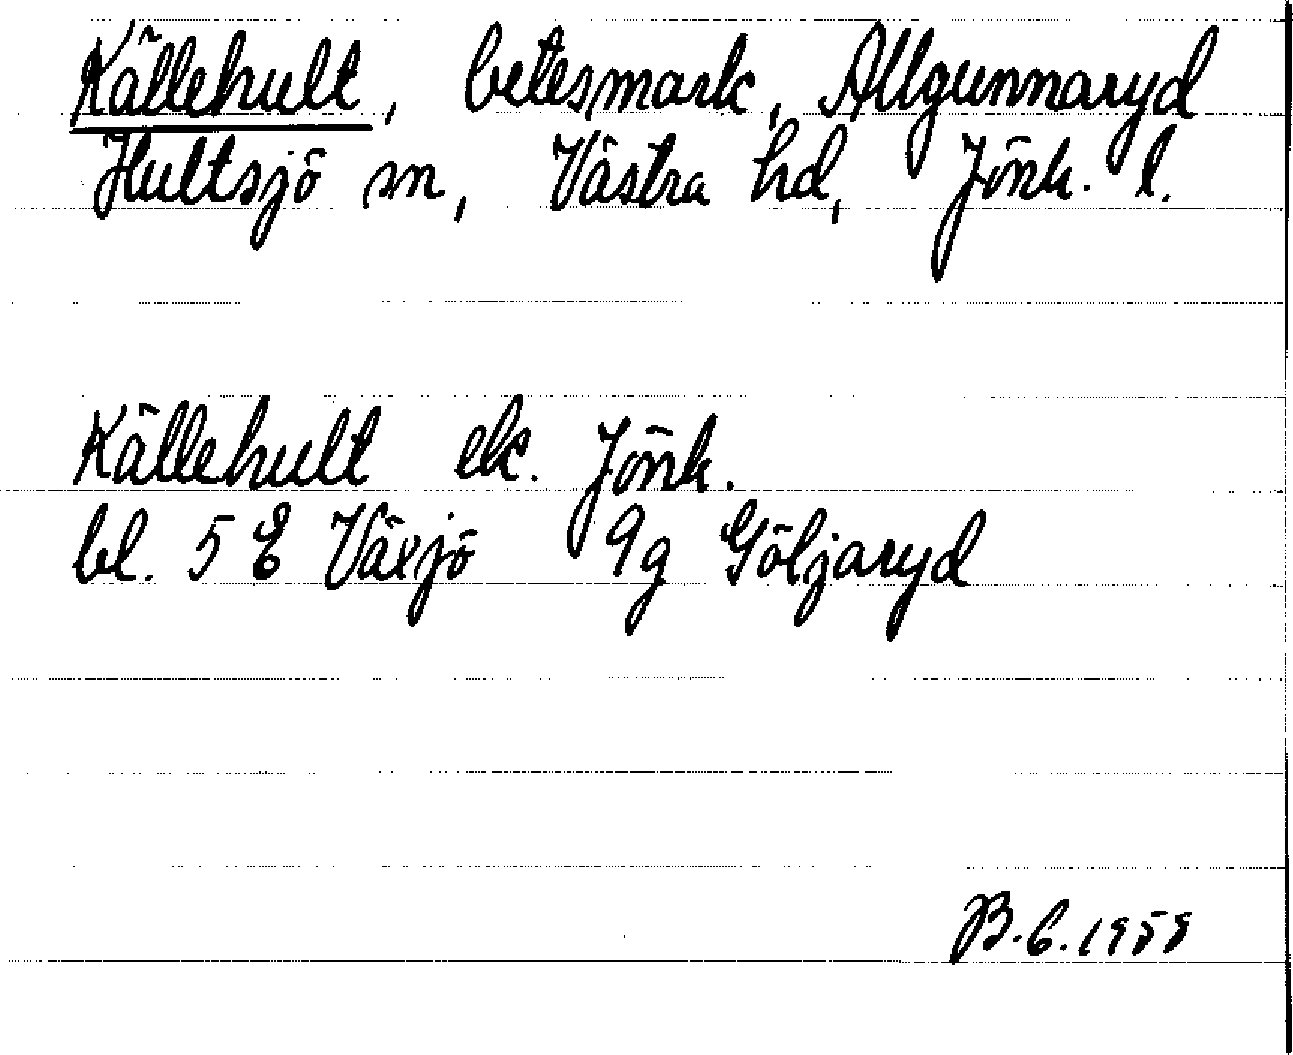 Källehult, betesmark, Allgunnaryd
Hultsjö sn, Västra hd, Jönk. l.
Källehult ek. Jönk.
bl. 5 E Växjö 9g Göljaryd
B.6.1959